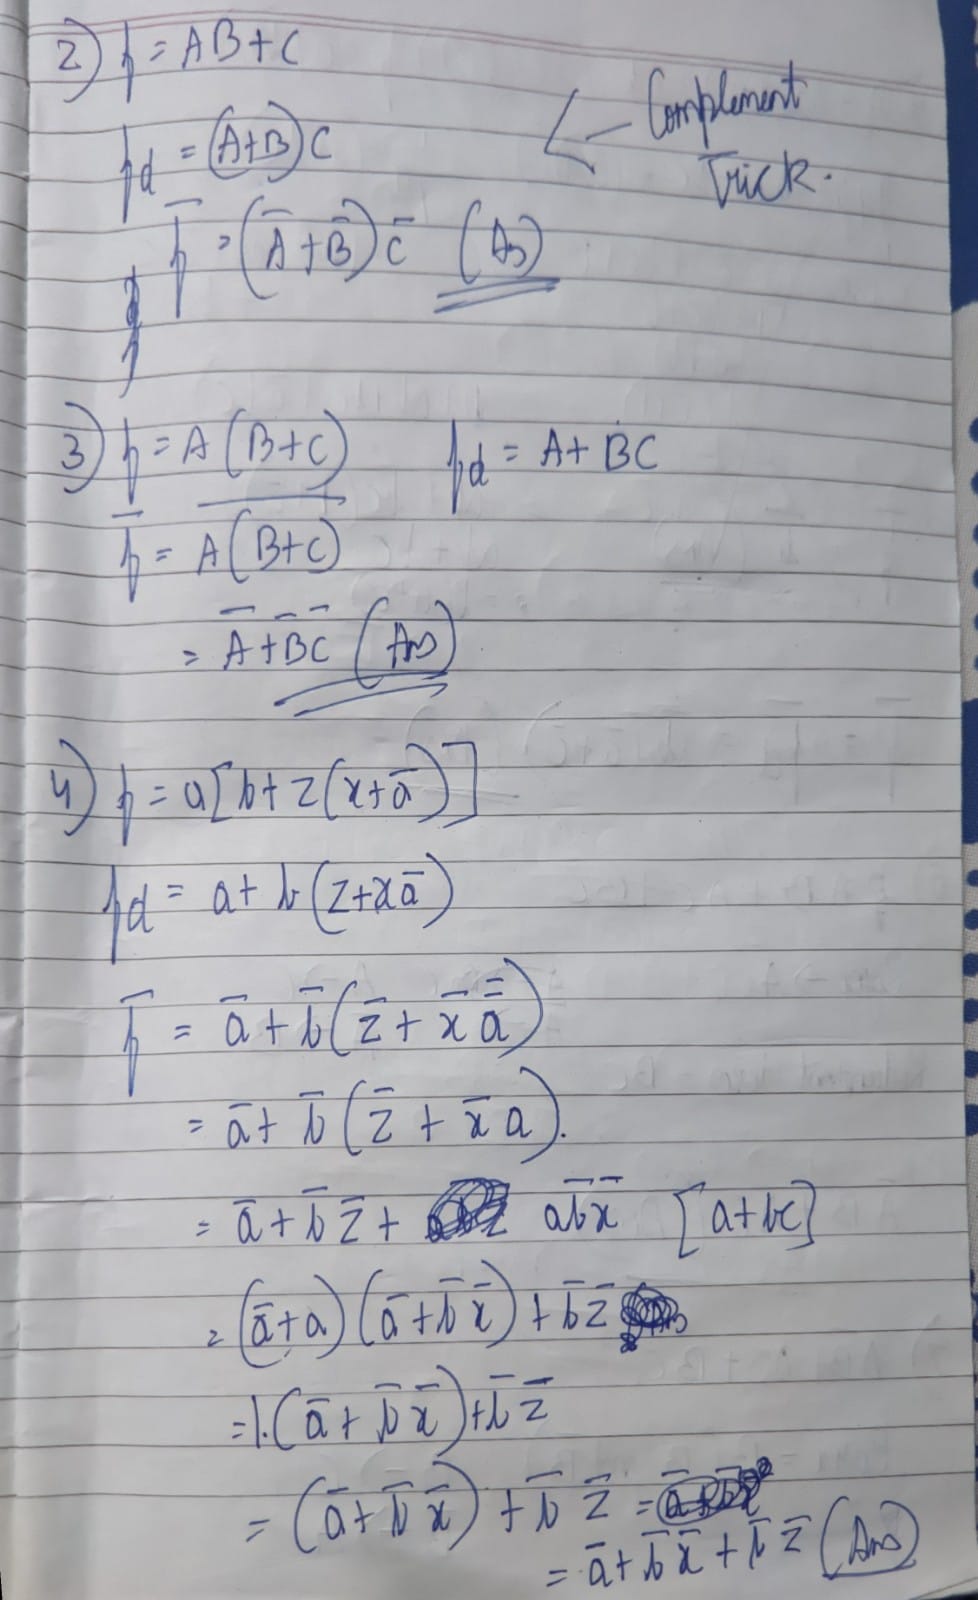 2) f = AB+C
f_d = (A+B)C
Complement Trick.
f̅ = (A̅+B̅)C̅ (Ans)
3) f = A(B+C) f_d = A+BC
f̅ = \overline{A(B+C)}
= A̅+B̅C̅ (Ans)
4) f = a[b+z(x+a̅)]
f_d = a+b(z+xa̅)
f̅ = a̅+b̅(z̅+x̅a̿)
= a̅+b̅(z̅+x̅a).
= a̅+b̅z̅+ab̅x̅ [a+bc]
= (a̅+a)(a̅+b̅x̅)+b̅z̅
=1.(a̅+b̅x̅)+b̅z̅
= (a̅+b̅x̅)+b̅z̅ =
= a̅+b̅x̅+b̅z̅ (Ans)